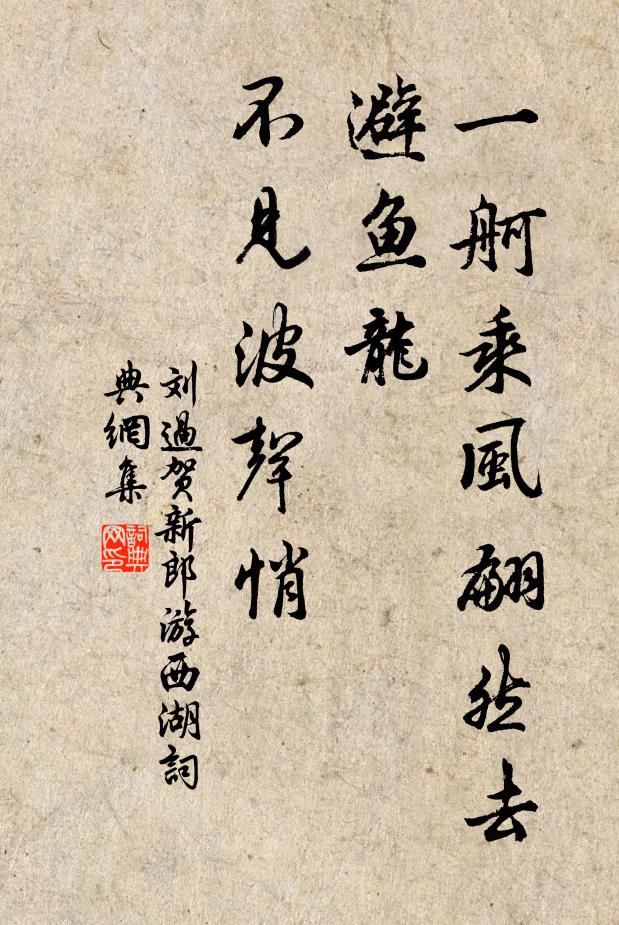 一舸乘風翩然去
避鱼龍
不見波聲悄
刘過贺新郎游西湖詞
典網集
詞典
网印